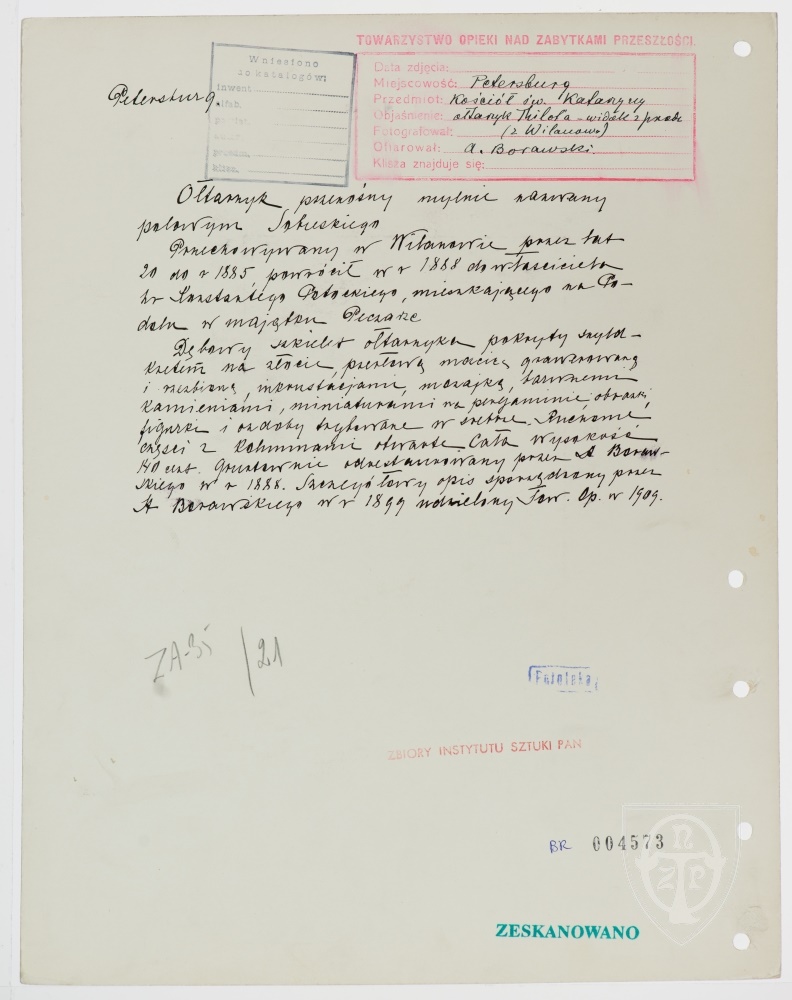 TOWARZYSTWO OPIEKI NAD ZABYTKAMI PRZESZŁOŚCI.
Wniesiono
do katalogów:
inwent.
Data zdjęcia:
Miejscowość: Petersburg
Przedmiot: Kościół św. Katarzyny
Objaśnienie: ołtarzyk Thilota – widok z przodu
Fotografował: (z Wilanowa)
Ofiarował: A. Borawski.
Klisza znajduje się:
Petersburg.
Ołtarzyk przenośny mylnie nazwany
polowym Sobieskiego
Przechowywany w Wilanowie przez lat
20 do r 1885 powrócił w r 1888 do właściciela
hr Konstantego Potockiego, mieszkającego na Po-
dolu w majątku Peczarze
Dębowy szkielet ołtarzyka pokryty szyld-
kretem na złocie, perłową macicą grawerowaną
i rzeźbioną, inkrustacjami, mozajką, barwnemi
kamieniami, miniaturami na pergaminie, obrazki,
figurki i ozdoby trybowane w srebrze. Ruchome
części z kolumnami otwarte Cała wysokość
140 cent. Gruntownie odrestaurowany przez A Boraw-
skiego w r 1888. Szczegółowy opis sporządzony przez
A Borawskiego w r 1899 udzielony Tow. Op. w 1909.
ZA-35 /21
Fototeka
ZBIORY INSTYTUTU SZTUKI PAN
BR 004573
NZP
ZESKANOWANO